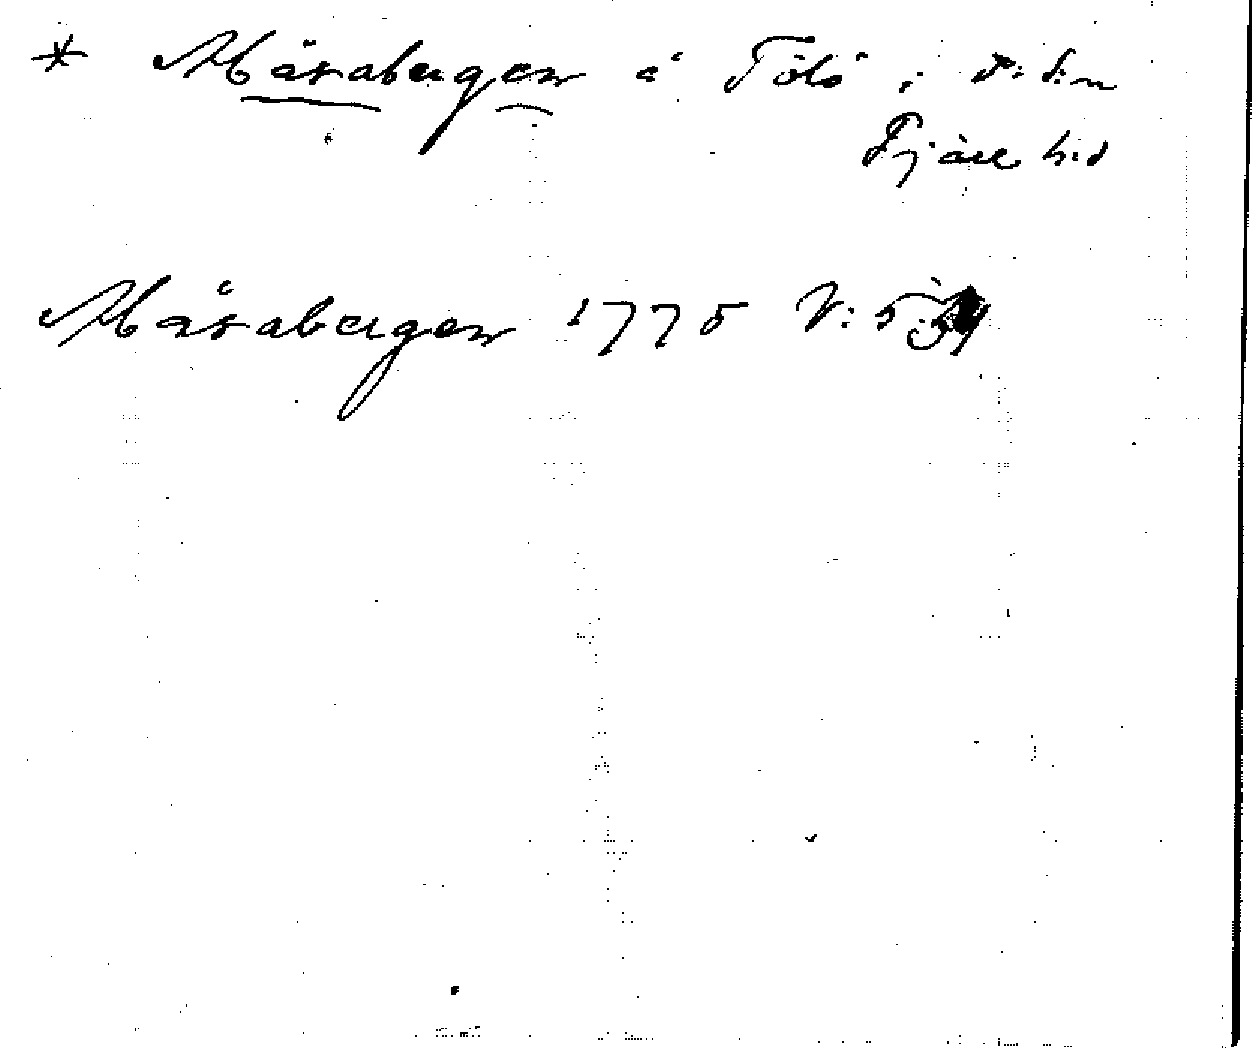 * Måsabergen å Tölö i d:o s:n
Fjäre hd
Måsabergen 1775 V: 5: